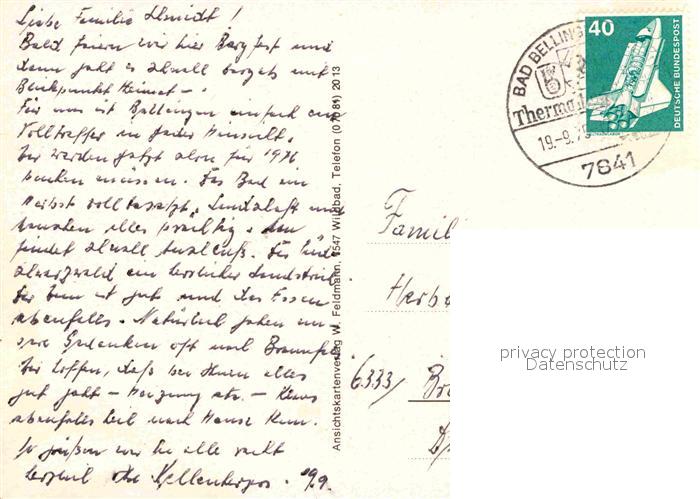 Liebe Familie Schmidt!
Bald feiern wir hier Bergfest und
dann geht es schnell bergab mit
Blickpunkt Heimat –
Für uns ist Bellingen einfach ein
Volltreffer in jeder Hinsicht.
Wir werden jetzt schon für 1976
buchen müssen. Das Bad im
Herbst voll besetzt, Landschaft und
alles prächtig. Man
findet schnell Anschluß. Der Süd
schwarzwald ein herrlicher Landstrich
Der Wein ist gut und das Essen
ebenfalls. Natürlich gehen un
sere Gedanken oft nach Braunfels
Wir hoffen, daß bei Ihnen alles
gut geht – Heizung etc. –
ebenfalls heil nach Hause kam.
So grüßen wir Sie alle recht
herzlich Ihre 19.9.
Ansichtskartenverlag W. Feldmann, 7547 Wildbad, Telefon (0 70 81) 20 13
BAD BELLING
Therma
19.-9.75
7841
40
DEUTSCHE BUNDESPOST
Famil
Herbe
6333/ Br
privacy protection
Datenschutz